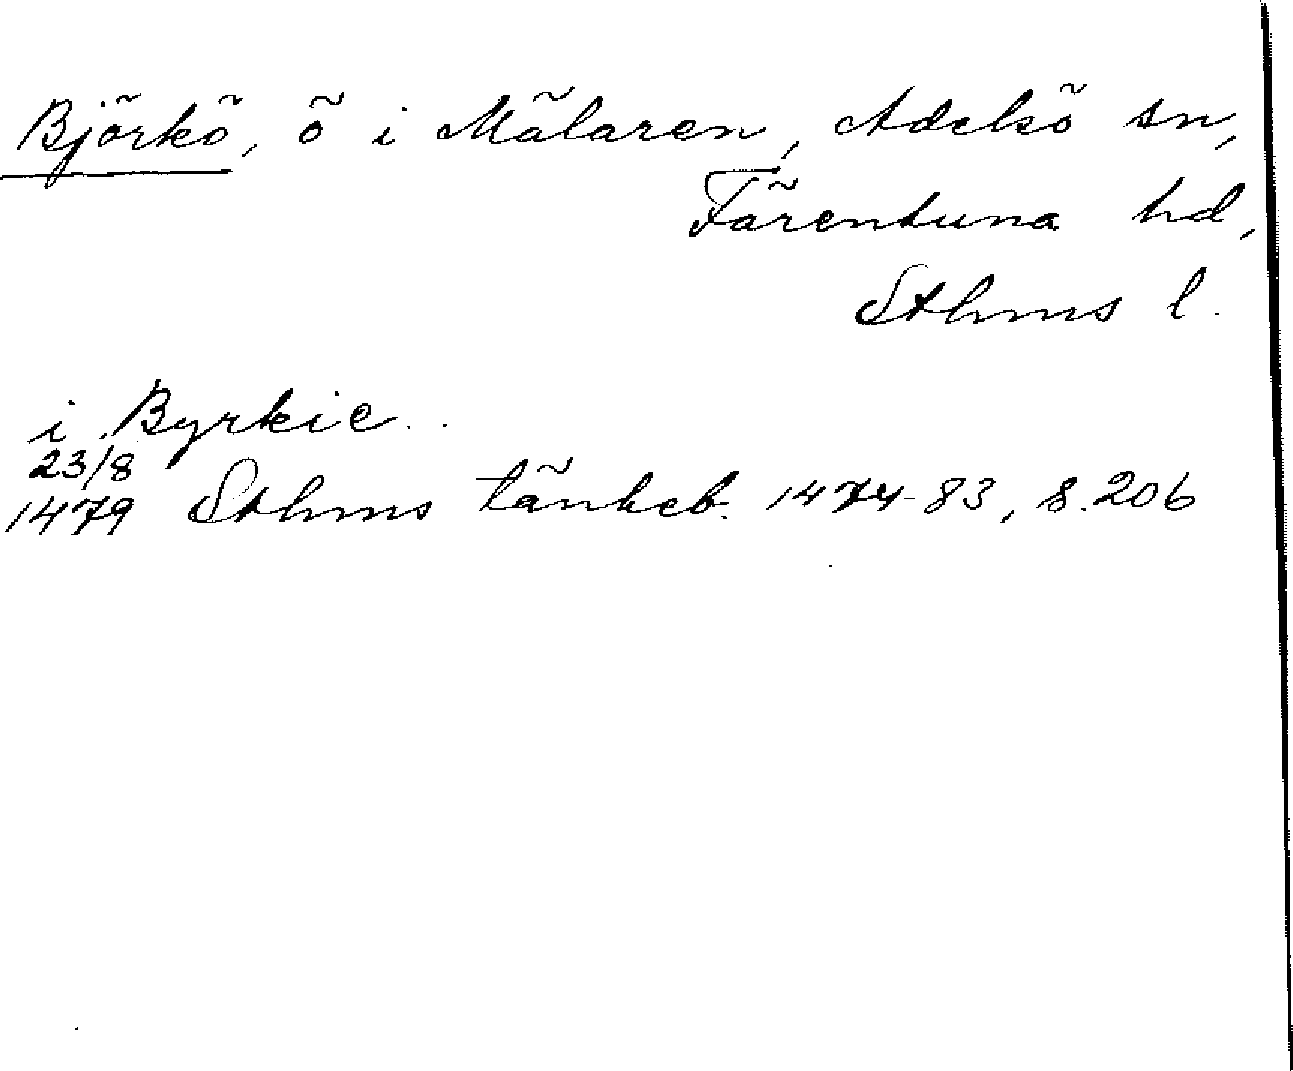 Björkö, ö i Mälaren, Adelsö sn,
Färentuna hd,
Sthms l.
i Byrkie
23/8
1479 Sthms tänkeb. 1474-83, s. 206